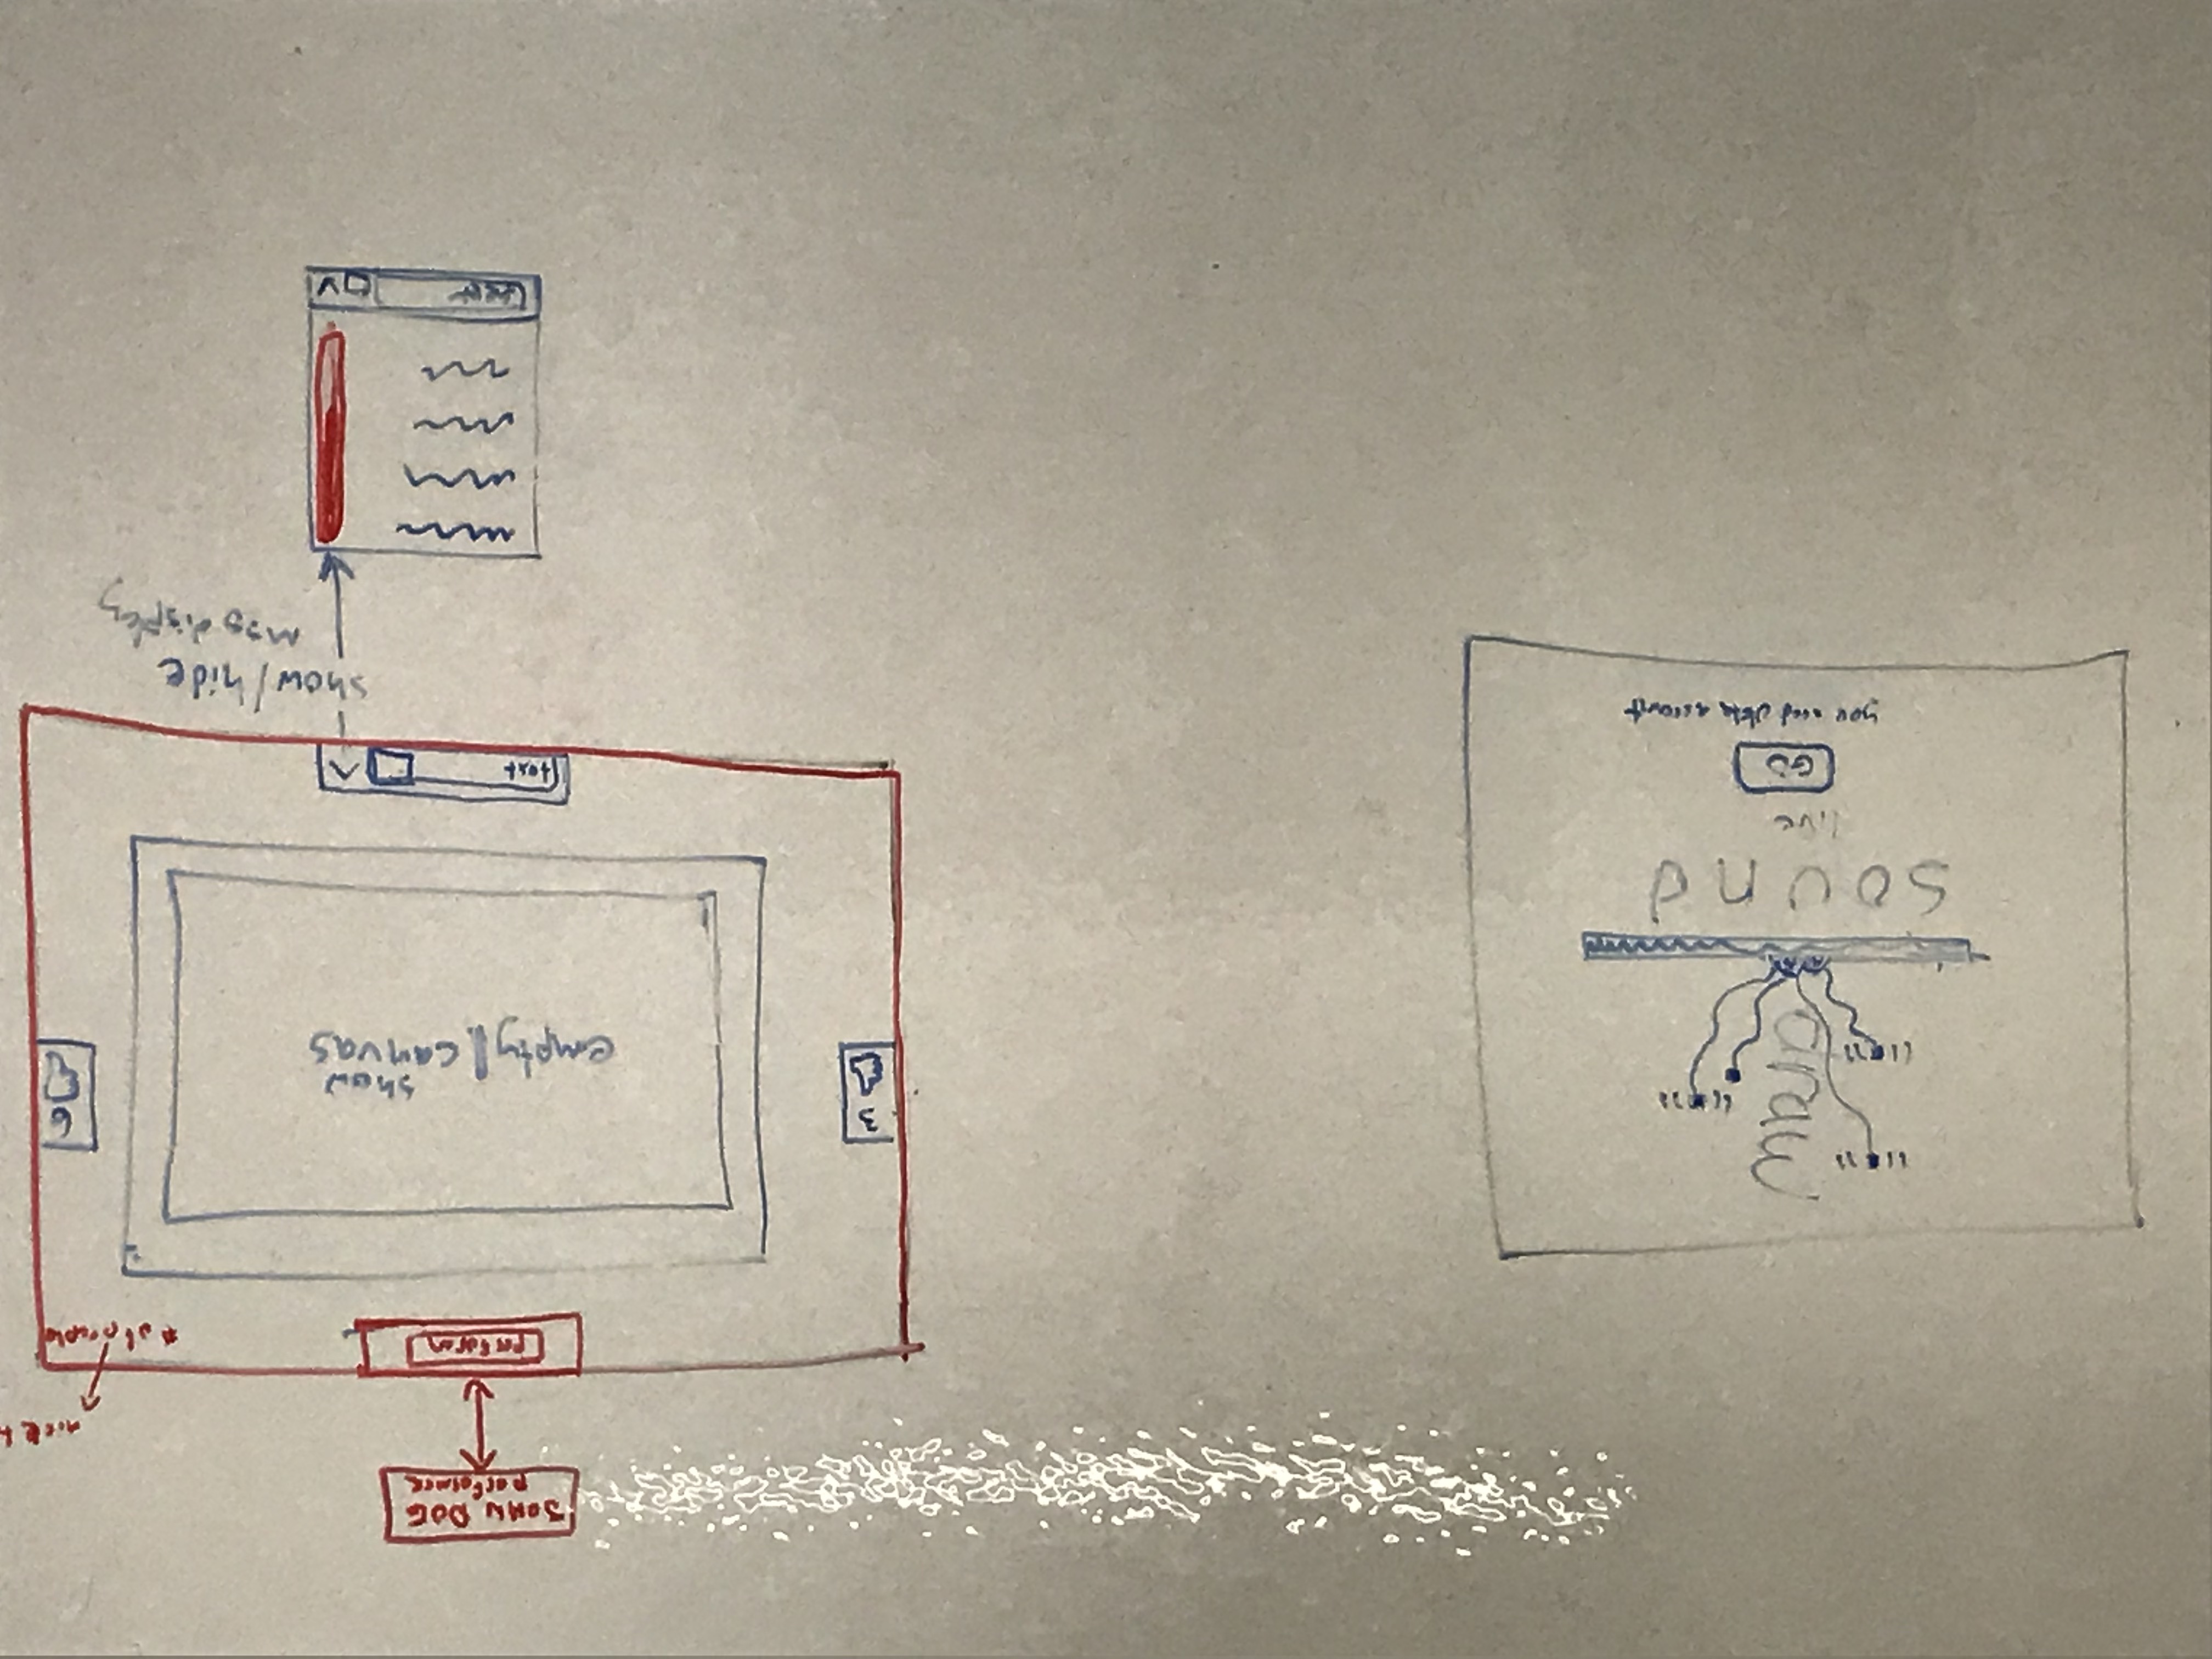 draw
sound
live
GO
you need
account
JOHN DOE
performer
perform
# of people
3
6
show
empty | canvas
text
show/hide
msg display
text